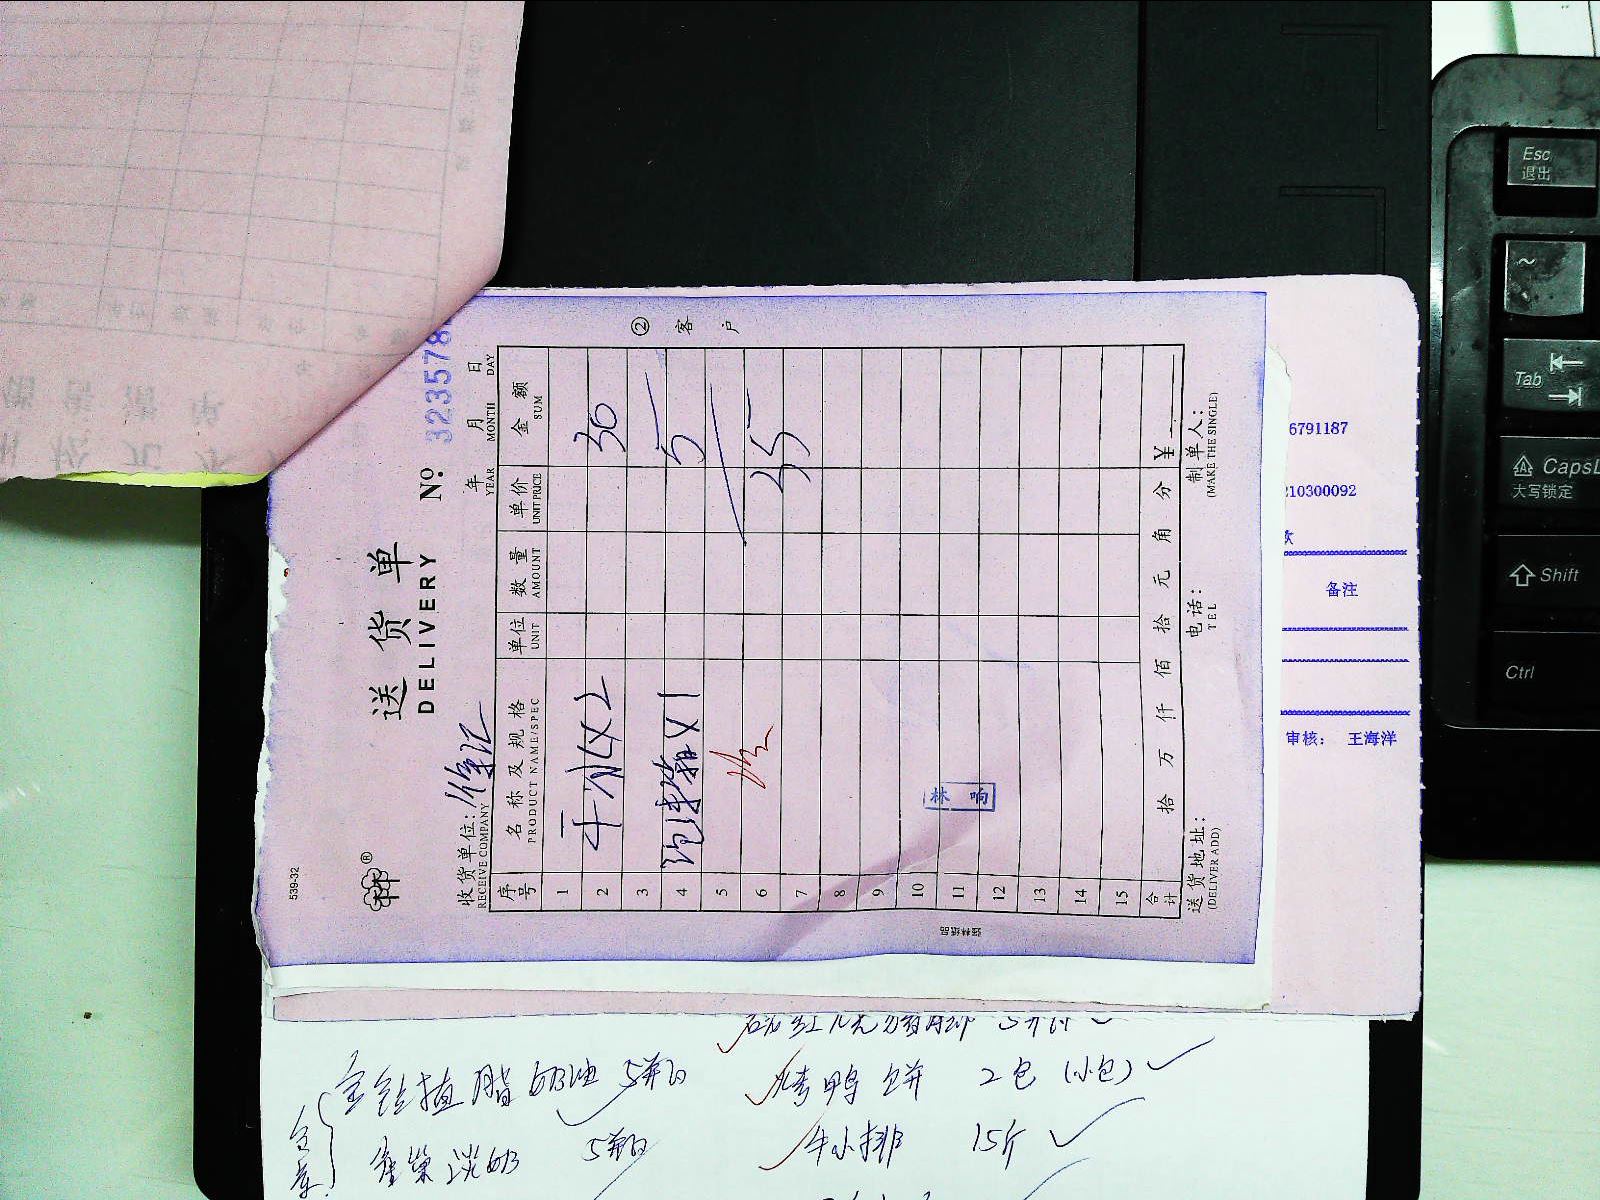 539-32
®
送货单
DELIVERY
No. 323578
收货单位：徐汇
RECEIVE COMPANY
年 月 日
YEAR MONTH DAY
序号 名称及规格 单位 数量 单价 金额
PRODUCT NAME/SPEC UNIT AMOUNT UNIT PRICE SUM
1
2 干冰×2 30
3
4 泡沫箱×1 5
5
6 35
7
8
9
10
11
12
13
14
15
林 响
合计 拾 万 仟 佰 拾 元 角 分 ¥
送货地址：
(DELIVER ADD)
电话：
TEL
制单人：
(MAKE THE SINGLE)
② 客户
6791187
210300092
备注
审核： 王海洋
金钻植脂奶油 5箱
烤鸭饼 2包 (小包)
牛小排 15斤
淡奶 5箱
Esc
退出
~
Tab
CapsL
大写锁定
Shift
Ctrl